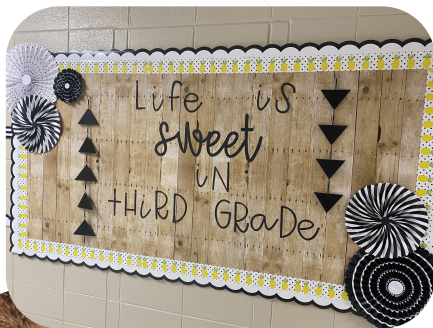 Life is
sweet
iN
tHiRD GRaDe